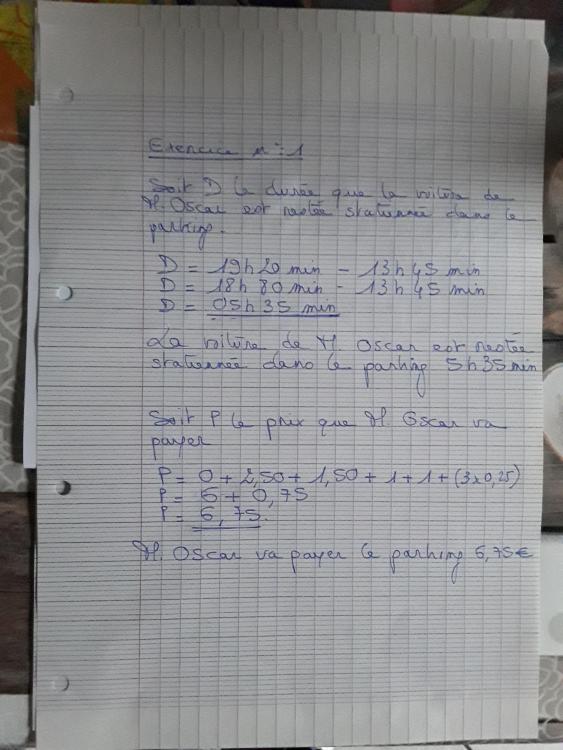 Exercice n°:1
Soit D la durée que la voiture de
M. Oscar est restée stationnée dans le
parking.
D = 19h20min - 13h45min
D = 18h80min - 13h45min
D = 05h35min
La voiture de M. Oscar est restée
stationnée dans le parking 5h35min
Soit P le prix que M. Oscar va
payer
P = 0 + 2,50 + 1,50 + 1 + 1 + (3x0,25)
P = 6 + 0,75
P = 6,75.
M. Oscar va payer le parking 6,75€